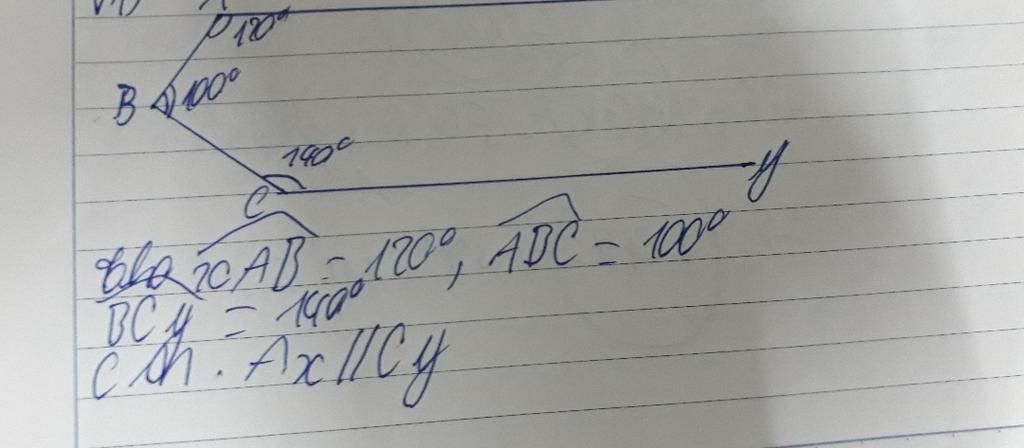 120°
B 100°
140°
C y
cho xAB = 120°, ABC = 100°
BCy = 140°
CM. Ax//Cy